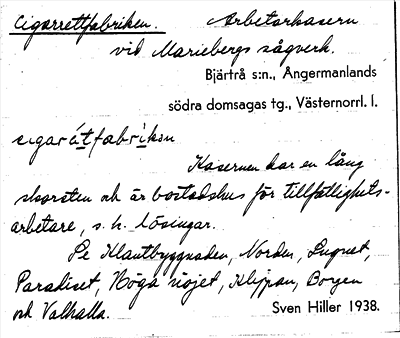 Cigarrettfabriken. Arbetarkasern
vid Mariebergs sågverk.
Bjärtrå s:n., Ångermanlands
södra domsagas tg., Västernorrl. l.
cigarátfabrikən
Kasernen har en lång
skorsten och är bostadshus för tillfällighets-
arbetare, s. k. lösingar.
Se Klautbyggnaden, Norden, Lugnet,
Paradiset, Höga nöjet, Klippan, Borgen
och Valhalla. Sven Hiller 1938.